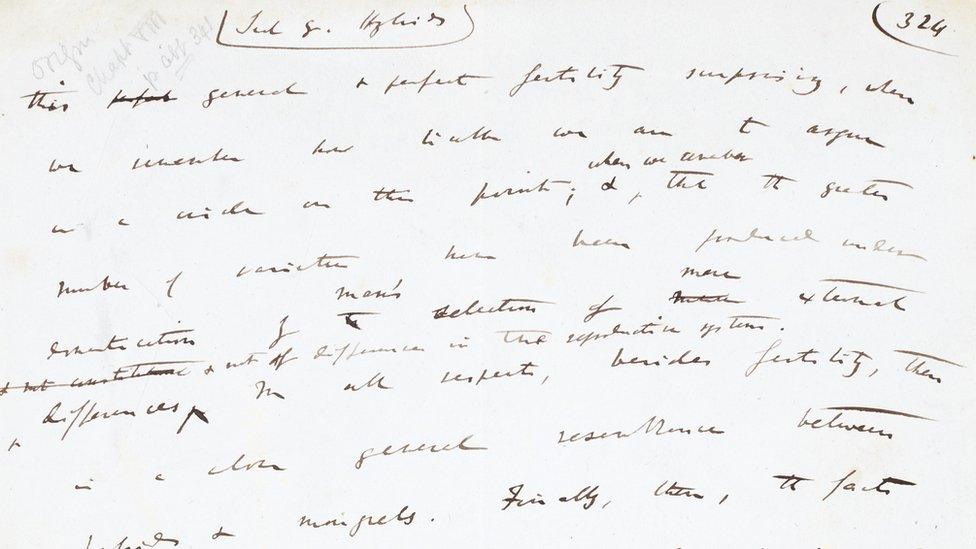 Origin
Chapt VIII
(Sect 9. Hybrids)
324
this general & perfect fertility surprising, when
we remember how liable we are to argue
when we remember
in a circle on this point; &, that the greater
number of varieties have been produced under
man's mere
domestication by selection of mere external
& not of differences in the reproductive system.
differences, In all respects, besides fertility, there
is a close general resemblance between
hybrids & mongrels. Finally, then, the facts